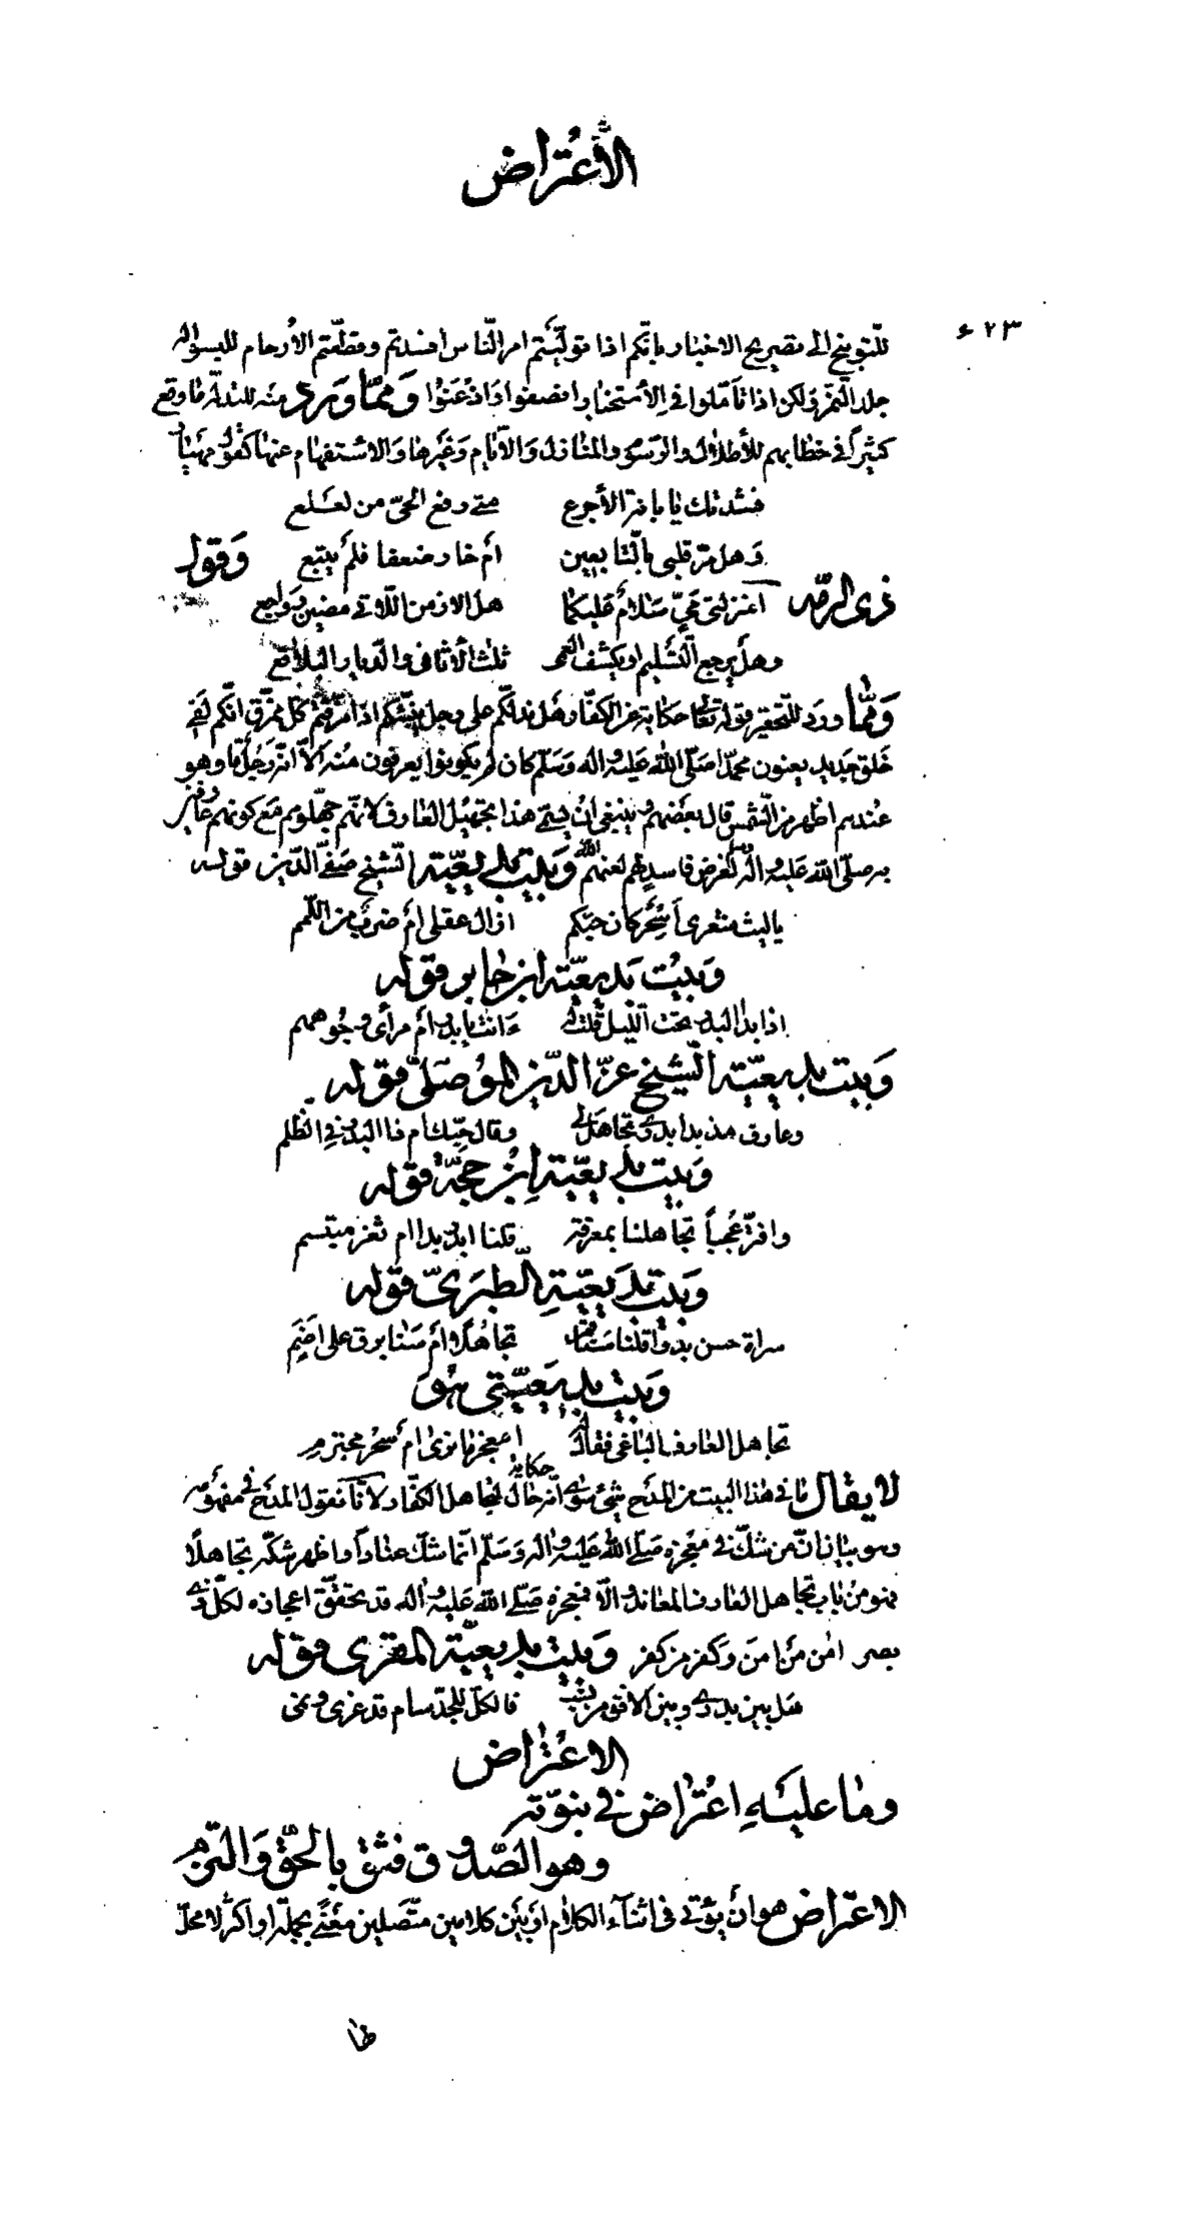 الاعتراض
٤٢٣
للتوبيخ الى تصريح الاخبار بانّكم اذا توليتم امر النّاس افسدتم وقطّعتم الأرحام للبسوا له
جلد النمر ولكن اذا تأمّلوا في الاستخبار انصفوا واذعنوا وممّا ورد منه للتدلّه ما وقع
كثيراً في خطابهم للأطلال والرسوم والمنازل والأيام وغيرها والاستفهام عنها كقول مهيار
نشدتك يا بانة الأجرع متى رفع الحىّ من لعلع
وهل مرّ قلبي بالتابعين أم خار ضعفا فلم يتبع وقول
ذي الرمّه أمنزلتي ميّ سلام عليكما هل الازمن اللّاتي مضين رواجع
وهل يرجع التسليم او يكشف العمى ثلث الأثافي والديار البلاقع
وممّا ورد للتحقير قوله تعالى حكاية عن الكفّار هل ندلّكم على رجل ينبّئكم اذا مزّقتم كلّ ممزّق انّكم لفي
خلق جديد يعنون محمّدا صلّى الله عليه واله وسلّم كان لم يكونوا يعرفون منه الّا انّه رجل ما وهو
عندهم اظهر من الشمس قال بعضهم ينبغى ان يسمّى هذا تجهيل العارف لانّهم جهّلوهم مع كونهم عارفين
به صلّى الله عليه واله لغرض فاسد لهم لعنهم الله وبيت بديعيّة الشيخ صفيّ الدّين قوله
يا ليت شعري أسحر كان حبّكم ازال عقلى أم ضرب من اللّمم
وبيت بديعيّة ابن جابر قوله
اذا بدا البدر تحت اللّيل قلت له ءانت يا بدر أم مرأى وجوههم
وبيت بديعيّة الشيخ عزّ الدّين الموصليّ قوله
وعارف مذ بدا بدرى تجاهل لى وقال حبّك ام ذا البدر في الظلم
وبيت بديعيّة ابن حجّة قوله
وافترّ عجباً تجاهلنا بمعرفة قلنا ابدر بدا ام ثغر مبتسم
وبيت بديعيّة الطبريّ قوله
مراة حسن بدوا قلنا تجاهلا أم سنا برق على اضم
وبيت بديعيّتي هو
تجاهل العارف الباغى فقال له امعجز ما نرى أم سحر مجترم
لا يقال ما في هذا البيت من المدح شئ سوى انّه حكاية حال لتجاهل الكفّار لانّا نقول المدح في مفهومه
وهو بيان انّ من شكّ في معجزه صلّى الله عليه واله وسلّم انّما شكّ عناداً واظهر شكّه تجاهلاً
فهو من باب تجاهل العارف المعاند والّا فمعجزه صلّى الله عليه واله قد تحقّق اعجازه لكلّ ذي
بصر امن من امن وكفر من كفر وبيت بديعيّة المقرى قوله
هل بين بدرى وبين الافق من نسب فالكلّ للمجد سام قد عزى ونمى
الاعتراض
وما عليه اعتراض في نبوّته
وهو الصّدوق فثق بالحقّ والتزم
الاعتراض هو أن يؤتى في اثناء الكلام او بين كلامين متّصلين معنًى بجملة او اكثر لا محلّ
لها